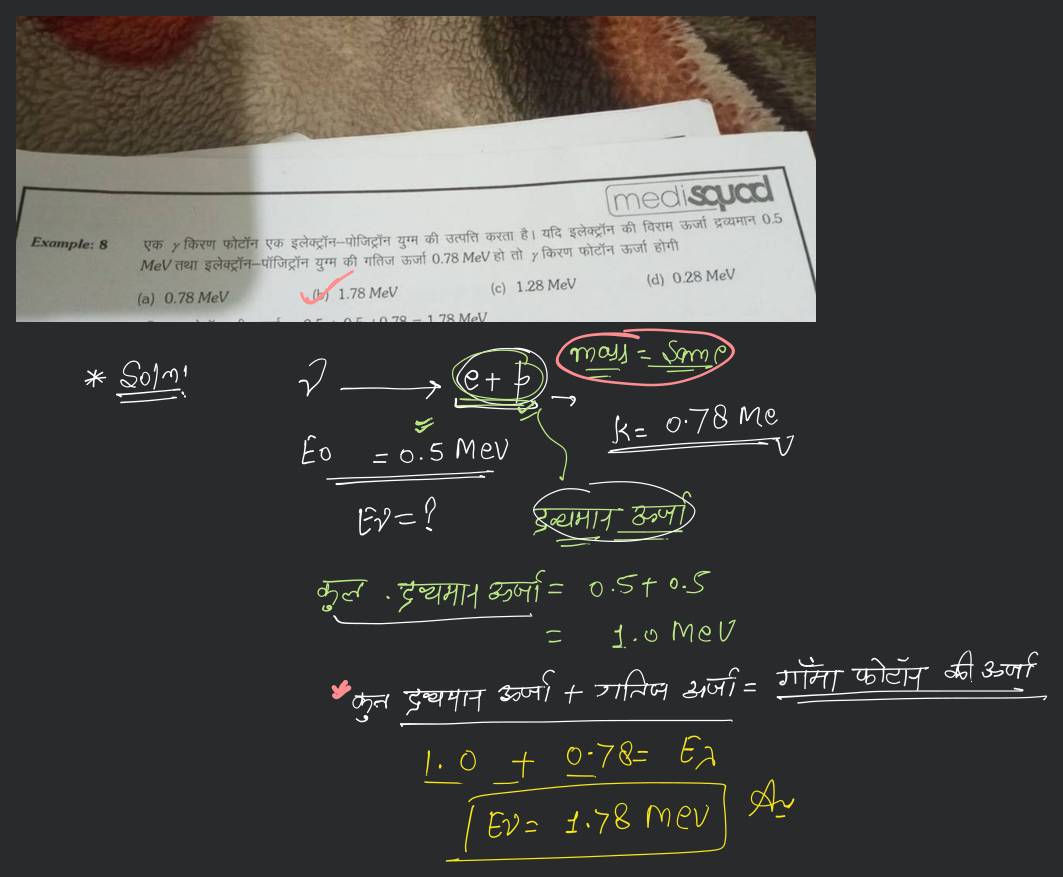 medisquad
Example: 8 एक γ किरण फोटॉन एक इलेक्ट्रॉन–पोजिट्रॉन युग्म की उत्पत्ति करता है। यदि इलेक्ट्रॉन की विराम ऊर्जा द्रव्यमान 0.5
MeV तथा इलेक्ट्रॉन–पॉजिट्रॉन युग्म की गतिज ऊर्जा 0.78 MeV हो तो γ किरण फोटॉन ऊर्जा होगी
(a) 0.78 MeV (b) 1.78 MeV (c) 1.28 MeV (d) 0.28 MeV
0.5 + 0.5 + 0.78 = 1.78 MeV
mass = Same
* Soln! ν → e + p →
K = 0.78 MeV
E0 = 0.5 MeV
Eν = ? द्रव्यमान ऊर्जा
कुल . द्रव्यमान ऊर्जा = 0.5 + 0.5
= 1.0 MeV
* कुल द्रव्यमान ऊर्जा + गतिज ऊर्जा = गॉमा फोटॉन की ऊर्जा
1.0 + 0.78 = Eλ
Eν = 1.78 MeV Ans